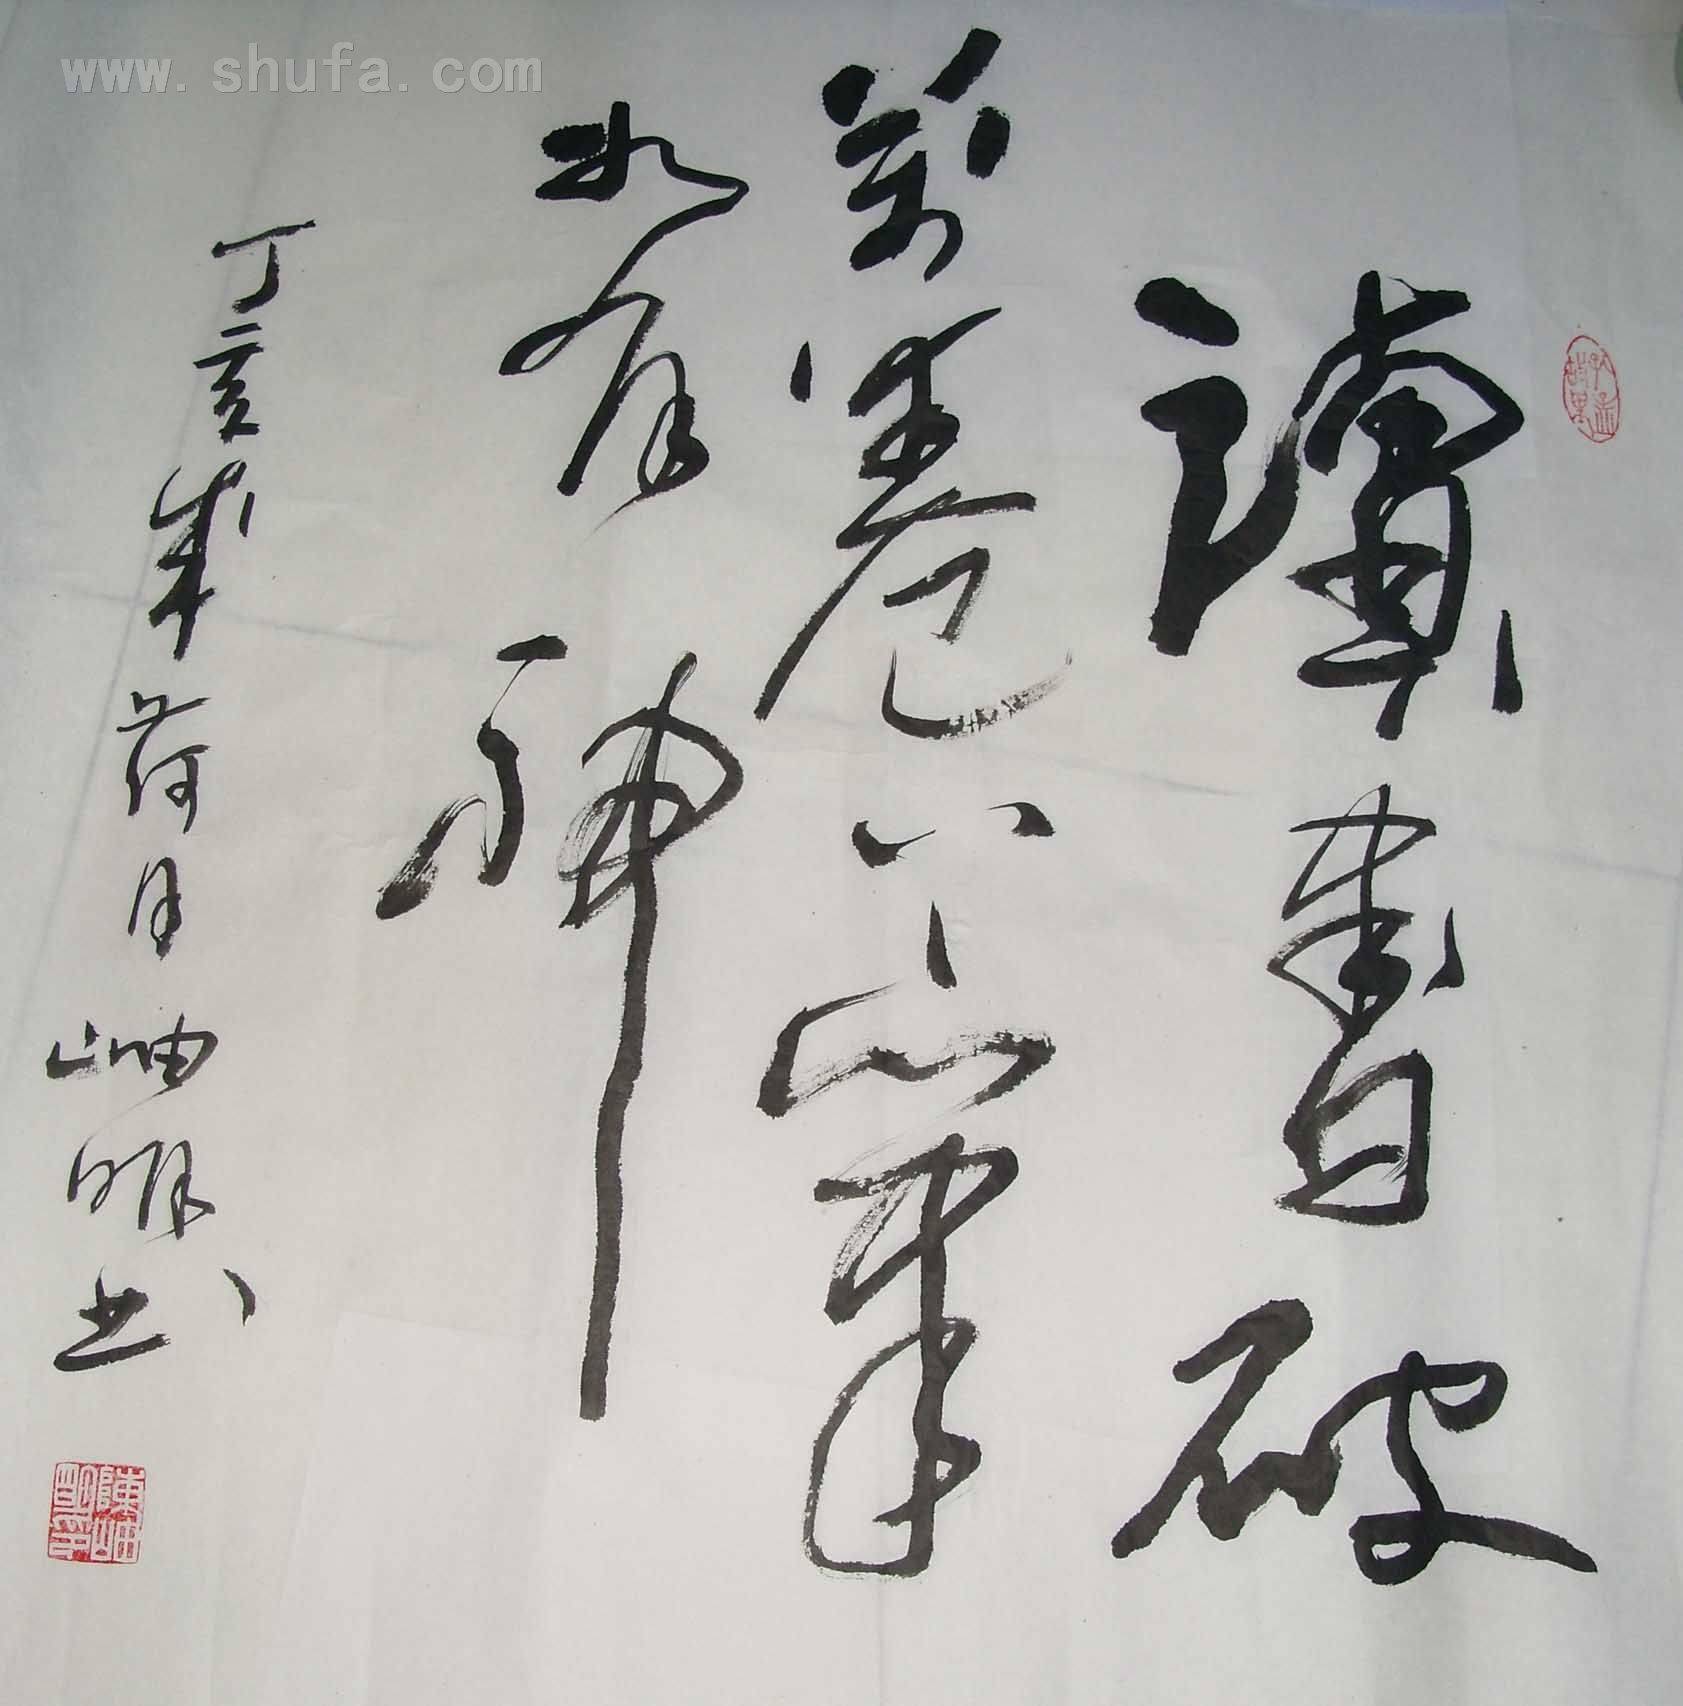 www.shufa.com
讀書破
萬卷下筆
如有神
丁亥年荷月岫明书
陳岫明印